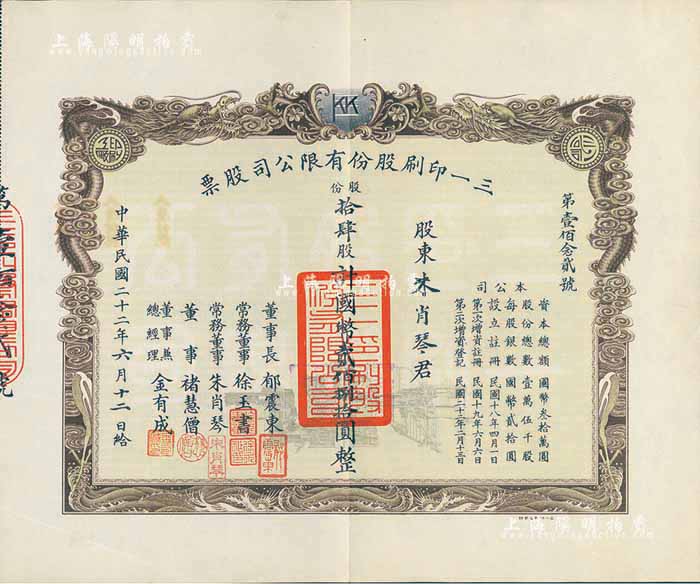 三一印刷股份有限公司股票
第壹佰念貳號
本公司
資本總額 國幣叁拾萬圓
股份總數 壹萬伍千股
每股銀數 國幣貳拾圓
設立註冊 民國十八年四月一日
第一次增資註冊 民國十九年六月六日
第二次增資登記 民國二十二年二月十三日
股東 朱肖琴君
股份 拾肆股 計國幣貳佰捌拾圓整
董事長 郁震東
常務董事 徐玉書
常務董事 朱肖琴
董事 褚慧僧
董事兼總經理 金有成
中華民國二十二年六月十二日給
上海陽明拍賣
上海陽明拍賣
上海陽明拍賣